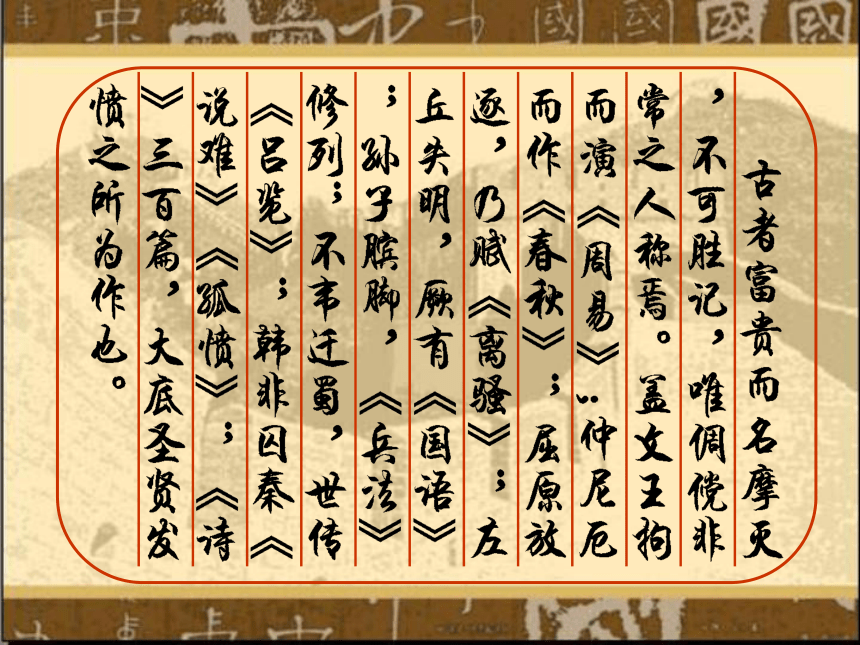 古者富贵而名摩灭
，不可胜记，唯倜傥非
常之人称焉。盖文王拘
而演《周易》；仲尼厄
而作《春秋》；屈原放
逐，乃赋《离骚》；左
丘失明，厥有《国语》
；孙子膑脚，《兵法》
修列；不韦迁蜀，世传
《吕览》；韩非囚秦《
说难》《孤愤》；《诗
》三百篇，大底圣贤发
愤之所为作也。